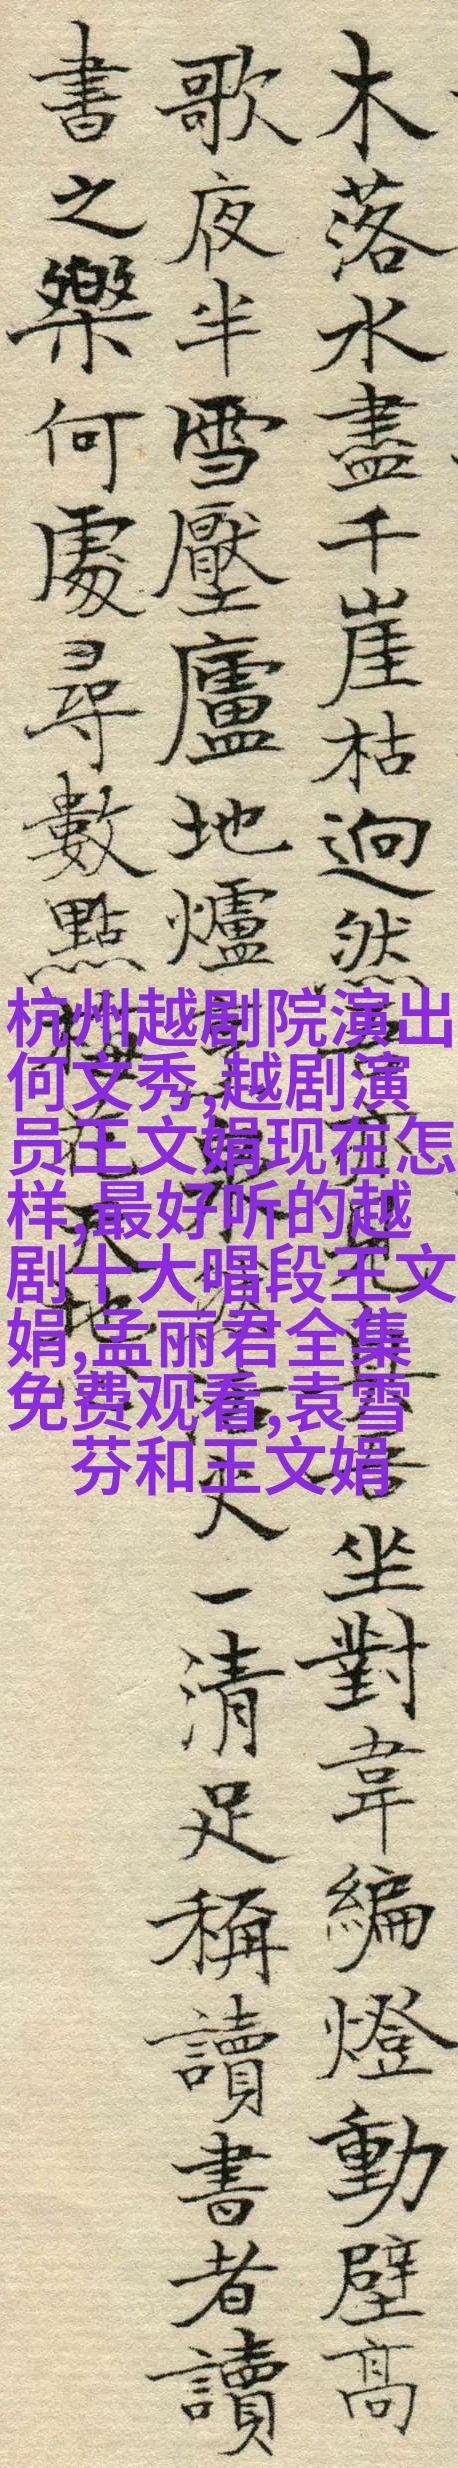 木落水盡千崖枯迥然吾亦見真吾坐對韋編燈動壁高
歌夜半雪壓廬地爐活火一清足稱讀書者讀
書之樂何處尋數點梅花天地心
杭州越剧院演出
何文秀,越剧演
员王文娟现在怎
样,最好听的越
剧十大唱段王文
娟,孟丽君全集
免费观看,袁雪
芬和王文娟